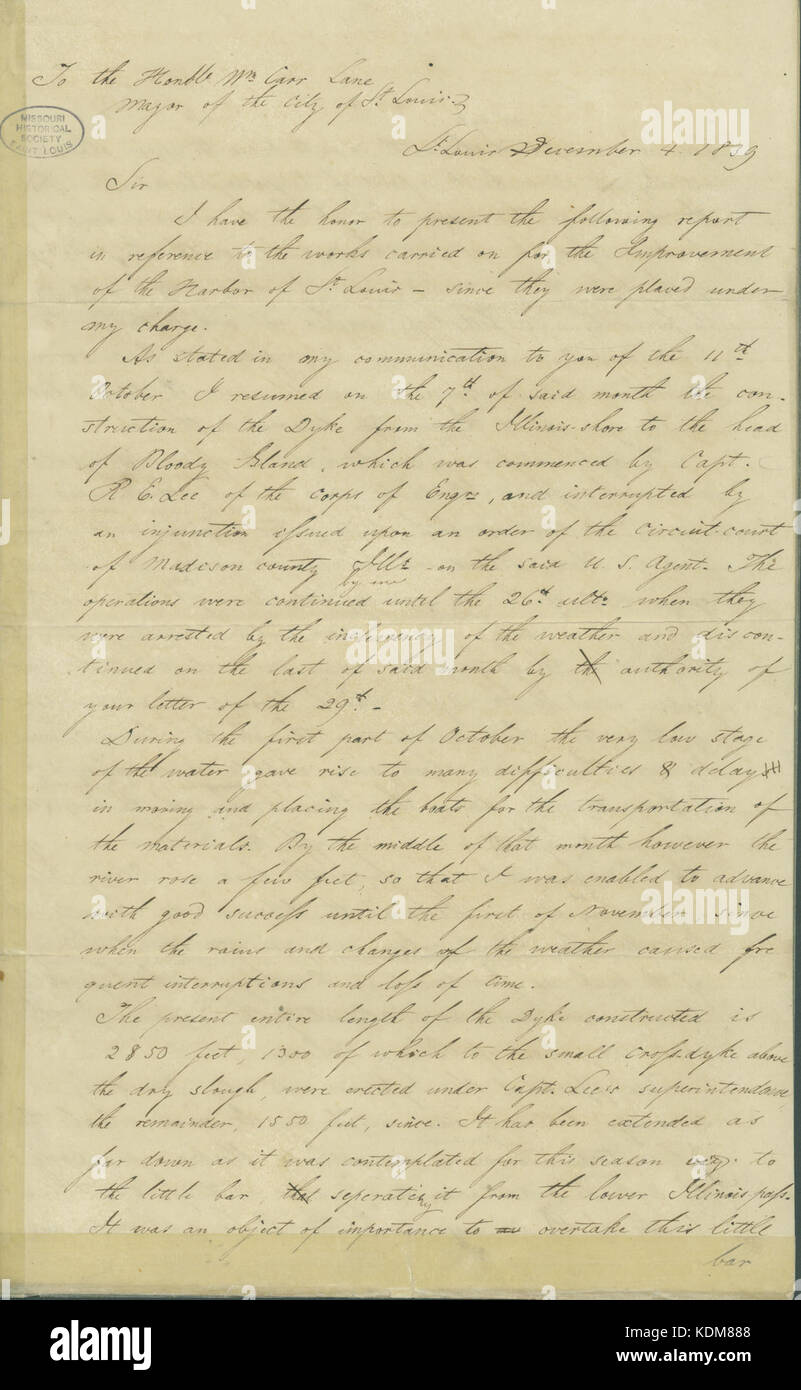 To the Honble Wm Carr Lane
Mayor of the City of St. Louis
MISSOURI
HISTORICAL
SOCIETY
SAINT LOUIS
St. Louis December 4. 1839
Sir
I have the honor to present the following report
in reference to the works carried on for the Improvement
of the Harbor of St. Louis – since they were placed under
my charge.
As stated in my communication to you of the 11th
October I resumed on the 7th of said month the con-
struction of the Dyke from the Illinois-shore to the head
of Bloody Island, which was commenced by Capt.
R. E. Lee of the corps of Engrs, and interrupted by
an injunction issued upon an order of the circuit-court
of Madison county Ills – on the said U. S. Agent. The
by me
operations were continued until the 26th ulto when they
were arrested by the inclemency of the weather and discon-
tinued on the last of said month by th authority of
your letter of the 29th –
During the first part of October the very low stage
of the water gave rise to many difficulties & delay
in moving and placing the boats for the transportation of
the materials. By the middle of that month however the
river rose a few feet, so that I was enabled to advance
with good success until the first of November since
when the rains and changes of the weather caused fre
quent interruptions and loss of time.
The present entire length of the Dyke constructed is
2850 feet, 1300 of which to the small cross-dyke above
the dry slough, were erected under Capt. Lee's superintendance,
the remainder, 1550 feet, since. It has been extended as
far down as it was contemplated for this season to
the little bar seperating it from the lower Illinois pass.
It was an object of importance to overtake this little
bar
alamy
Image ID: KDM888
www.alamy.com